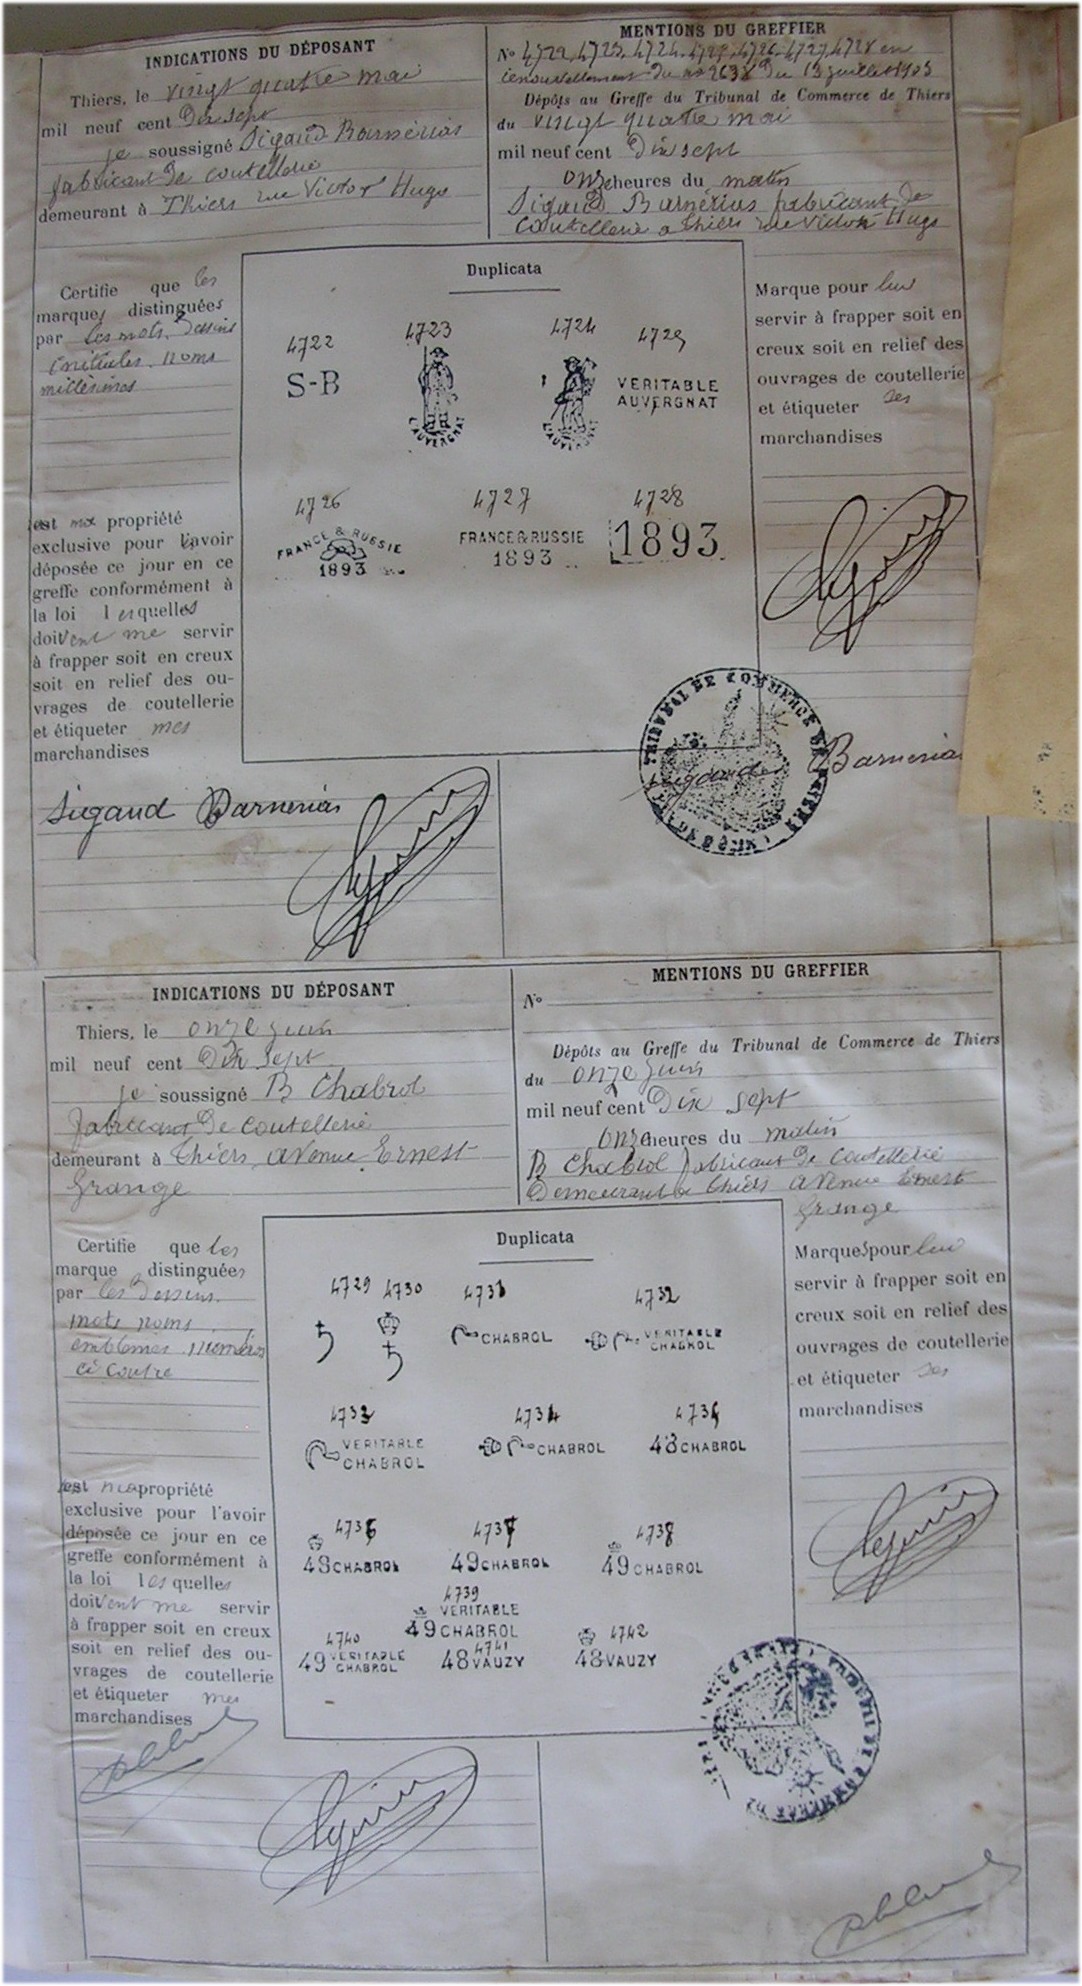 INDICATIONS DU DÉPOSANT
Thiers, le vingt quatre mai
mil neuf cent Dix sept
je soussigné Sigaud Barnérias
fabricant De coutellerie
demeurant à Thiers rue Victor Hugo
MENTIONS DU GREFFIER
No 4722, 4723, 4724, 4725, 4726, 4727, 4728 en
renouvellement du no 2638 Du 13 juillet 1903
Dépôts au Greffe du Tribunal de Commerce de Thiers
du vingt quatre mai
mil neuf cent Dix sept
onze heures du matin
Sigaud Barnérias fabricant De
Coutellerie a Thiers rue Victor Hugo
Certifie que les
marques distinguées
par les mots, Dessins
initiales. noms
millésimes
est ma propriété
exclusive pour l'avoir
déposée ce jour en ce
greffe conformément à
la loi lesquelles
doivent me servir
à frapper soit en creux
soit en relief des ou-
vrages de coutellerie
et étiqueter mes
marchandises
Duplicata
4722 4723 4724 4725
S-B
L'AUVERGNAT
L'AUVERGNAT
VERITABLE
AUVERGNAT
4726 4727 4728
FRANCE & RUSSIE
1893
FRANCE & RUSSIE
1893
1893
Marque pour lui
servir à frapper soit en
creux soit en relief des
ouvrages de coutellerie
et étiqueter ses
marchandises
TRIBUNAL DE COMMERCE DE THIERS
Sigaud Barnerias
Sigaud Barnerias
INDICATIONS DU DÉPOSANT
Thiers, le onze juin
mil neuf cent Dix sept
je soussigné B Chabrol
fabricant De coutellerie
demeurant à Thiers avenue Ernest
Grange
MENTIONS DU GREFFIER
No
Dépôts au Greffe du Tribunal de Commerce de Thiers
du onze juin
mil neuf cent Dix sept
onze heures du matin
B Chabrol fabricant De coutellerie
Demeurant a Thiers avenue Ernest
Grange
Certifie que les
marque distinguées
par les Dessins.
mots noms
emblemes numéros
ci contre
est ma propriété
exclusive pour l'avoir
déposée ce jour en ce
greffe conformément à
la loi lesquelles
doivent me servir
à frapper soit en creux
soit en relief des ou-
vrages de coutellerie
et étiqueter mes
marchandises
Duplicata
4729 4730 4731 4732
CHABROL
VERITABLE
CHABROL
4733 4734 4735
VERITABLE
CHABROL
CHABROL
48 CHABROL
4736 4737 4738
48 CHABROL
49 CHABROL
49 CHABROL
4739
VERITABLE
49 CHABROL
4740 4741 4742
49 VERITABLE
CHABROL
48 VAUZY
48 VAUZY
Marques pour lui
servir à frapper soit en
creux soit en relief des
ouvrages de coutellerie
et étiqueter ses
marchandises